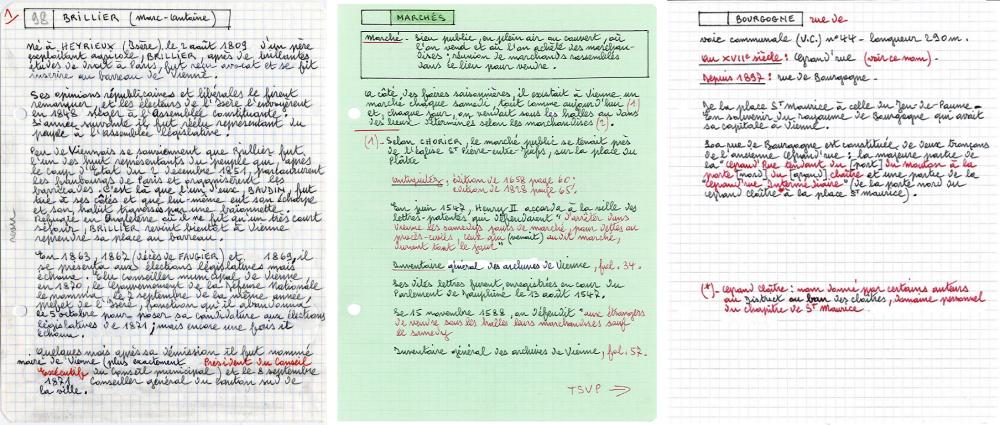 1
98 BRILLIER (Marc-Antoine)
Né à HEYRIEUX (Isère), le 2 août 1809 d'un père
exploitant agricole, BRILLIER, après de brillantes
études de droit à Paris, fut reçu avocat et se fit
inscrire au barreau de Vienne.
Ses opinions républicaines et libérales le firent
remarquer, et les électeurs de l'Isère l'envoyèrent
en 1848 siéger à l'Assemblée constituante.
L'année suivante il fut réélu représentant du
peuple à l'assemblée législative.
Peu de Viennois se souviennent que Brillier fut
l'un des huit représentants du peuple qui, après
le coup d'État du 2 décembre 1851, parcoururent
les faubourgs de Paris et organisèrent les
barricades. C'est là que l'un d'eux, BAUDIN, fut
tué à ses côtés et que lui-même eut son écharpe
et son habit traversés par une baïonnette.
Réfugié en Angleterre où il ne fit qu'un très court
séjour, BRILLIER revint bientôt à Vienne
reprendre sa place au barreau.
En 1863, 1867 (décès de FAUGIER) et 1869, il
se présenta aux élections législatives mais
échoua. Élu conseiller municipal de Vienne
en 1870, le Gouvernement de la Défense Nationale
le nomma le 2 septembre de la même année
préfet de l'Isère - fonction qu'il abandonna
le 5 octobre pour poser sa candidature aux élections
législatives de 1871; mais encore une fois il
échoua.
Quelques mois après sa démission il fut nommé
maire de Vienne (plus exactement Président du Conseil
Exécutif du Conseil municipal) et le 8 septembre
1871 Conseiller général du canton sud de
la ville.
MARCHÉS
Marché - Lieu public, en plein air ou couvert, où
l'on vend et où l'on achète des marchan-
dises; réunion de marchands rassemblés
dans le lieu pour vendre.
A côté des foires saisonnières, il existait à Vienne un
marché chaque samedi, tout comme aujourd'hui (1)
et, chaque jour, on vendait sous les halles ou dans
des lieux déterminés selon les marchandises (2).
(1) - Selon CHORIER, le marché public se tenait près
de l'église St Pierre-entre-Juifs, sur la place du
Plâtre
Antiquités, édition de 1658 page 60.
édition de 1828 page 65.
En juin 1547, Henry II accorda à la ville des
lettres-patentes qui défendaient "d'arrêter dans
Vienne les samedys jours de marché, pour dettes ou
procès-civils, ceux qui (venait) audit marché,
durant tout le jour"
Inventaire général des archives de Vienne, fol. 34.
Ses dites lettres furent enregistrées en cour du
Parlement de Dauphiné le 13 août 1547.
Le 15 novembre 1588, on défendit "aux étrangers
de vendre sous les halles leurs marchandises sauf
le samedy
Inventaire général des archives de Vienne, fol. 57.
TSVP →
BOURGOGNE rue de
voie communale (V.C.) n° 44 - longueur 290 m.
Au XVIIe siècle : Grand'rue (voir ce nom).
Depuis 1897 : rue de Bourgogne -
De la place St Maurice à celle du Jeu de-Paume -
En souvenir du royaume de Bourgogne qui avait
sa capitale à Vienne.
La rue de Bourgogne est constituée de deux tronçons
de l'ancienne Grand'rue : la majeure partie de
la "Grand'Rue tendant du [port] du mouton à la
porte [nord] du [grand] cloître et une partie de la
"Grand'rue Intermédiaire" (de la porte nord du
grand cloître à la place St Maurice).
(*) - Grand Cloître : nom donné par certains auteurs
au district ou ban des cloîtres, domaine personnel
du chapitre de St Maurice.